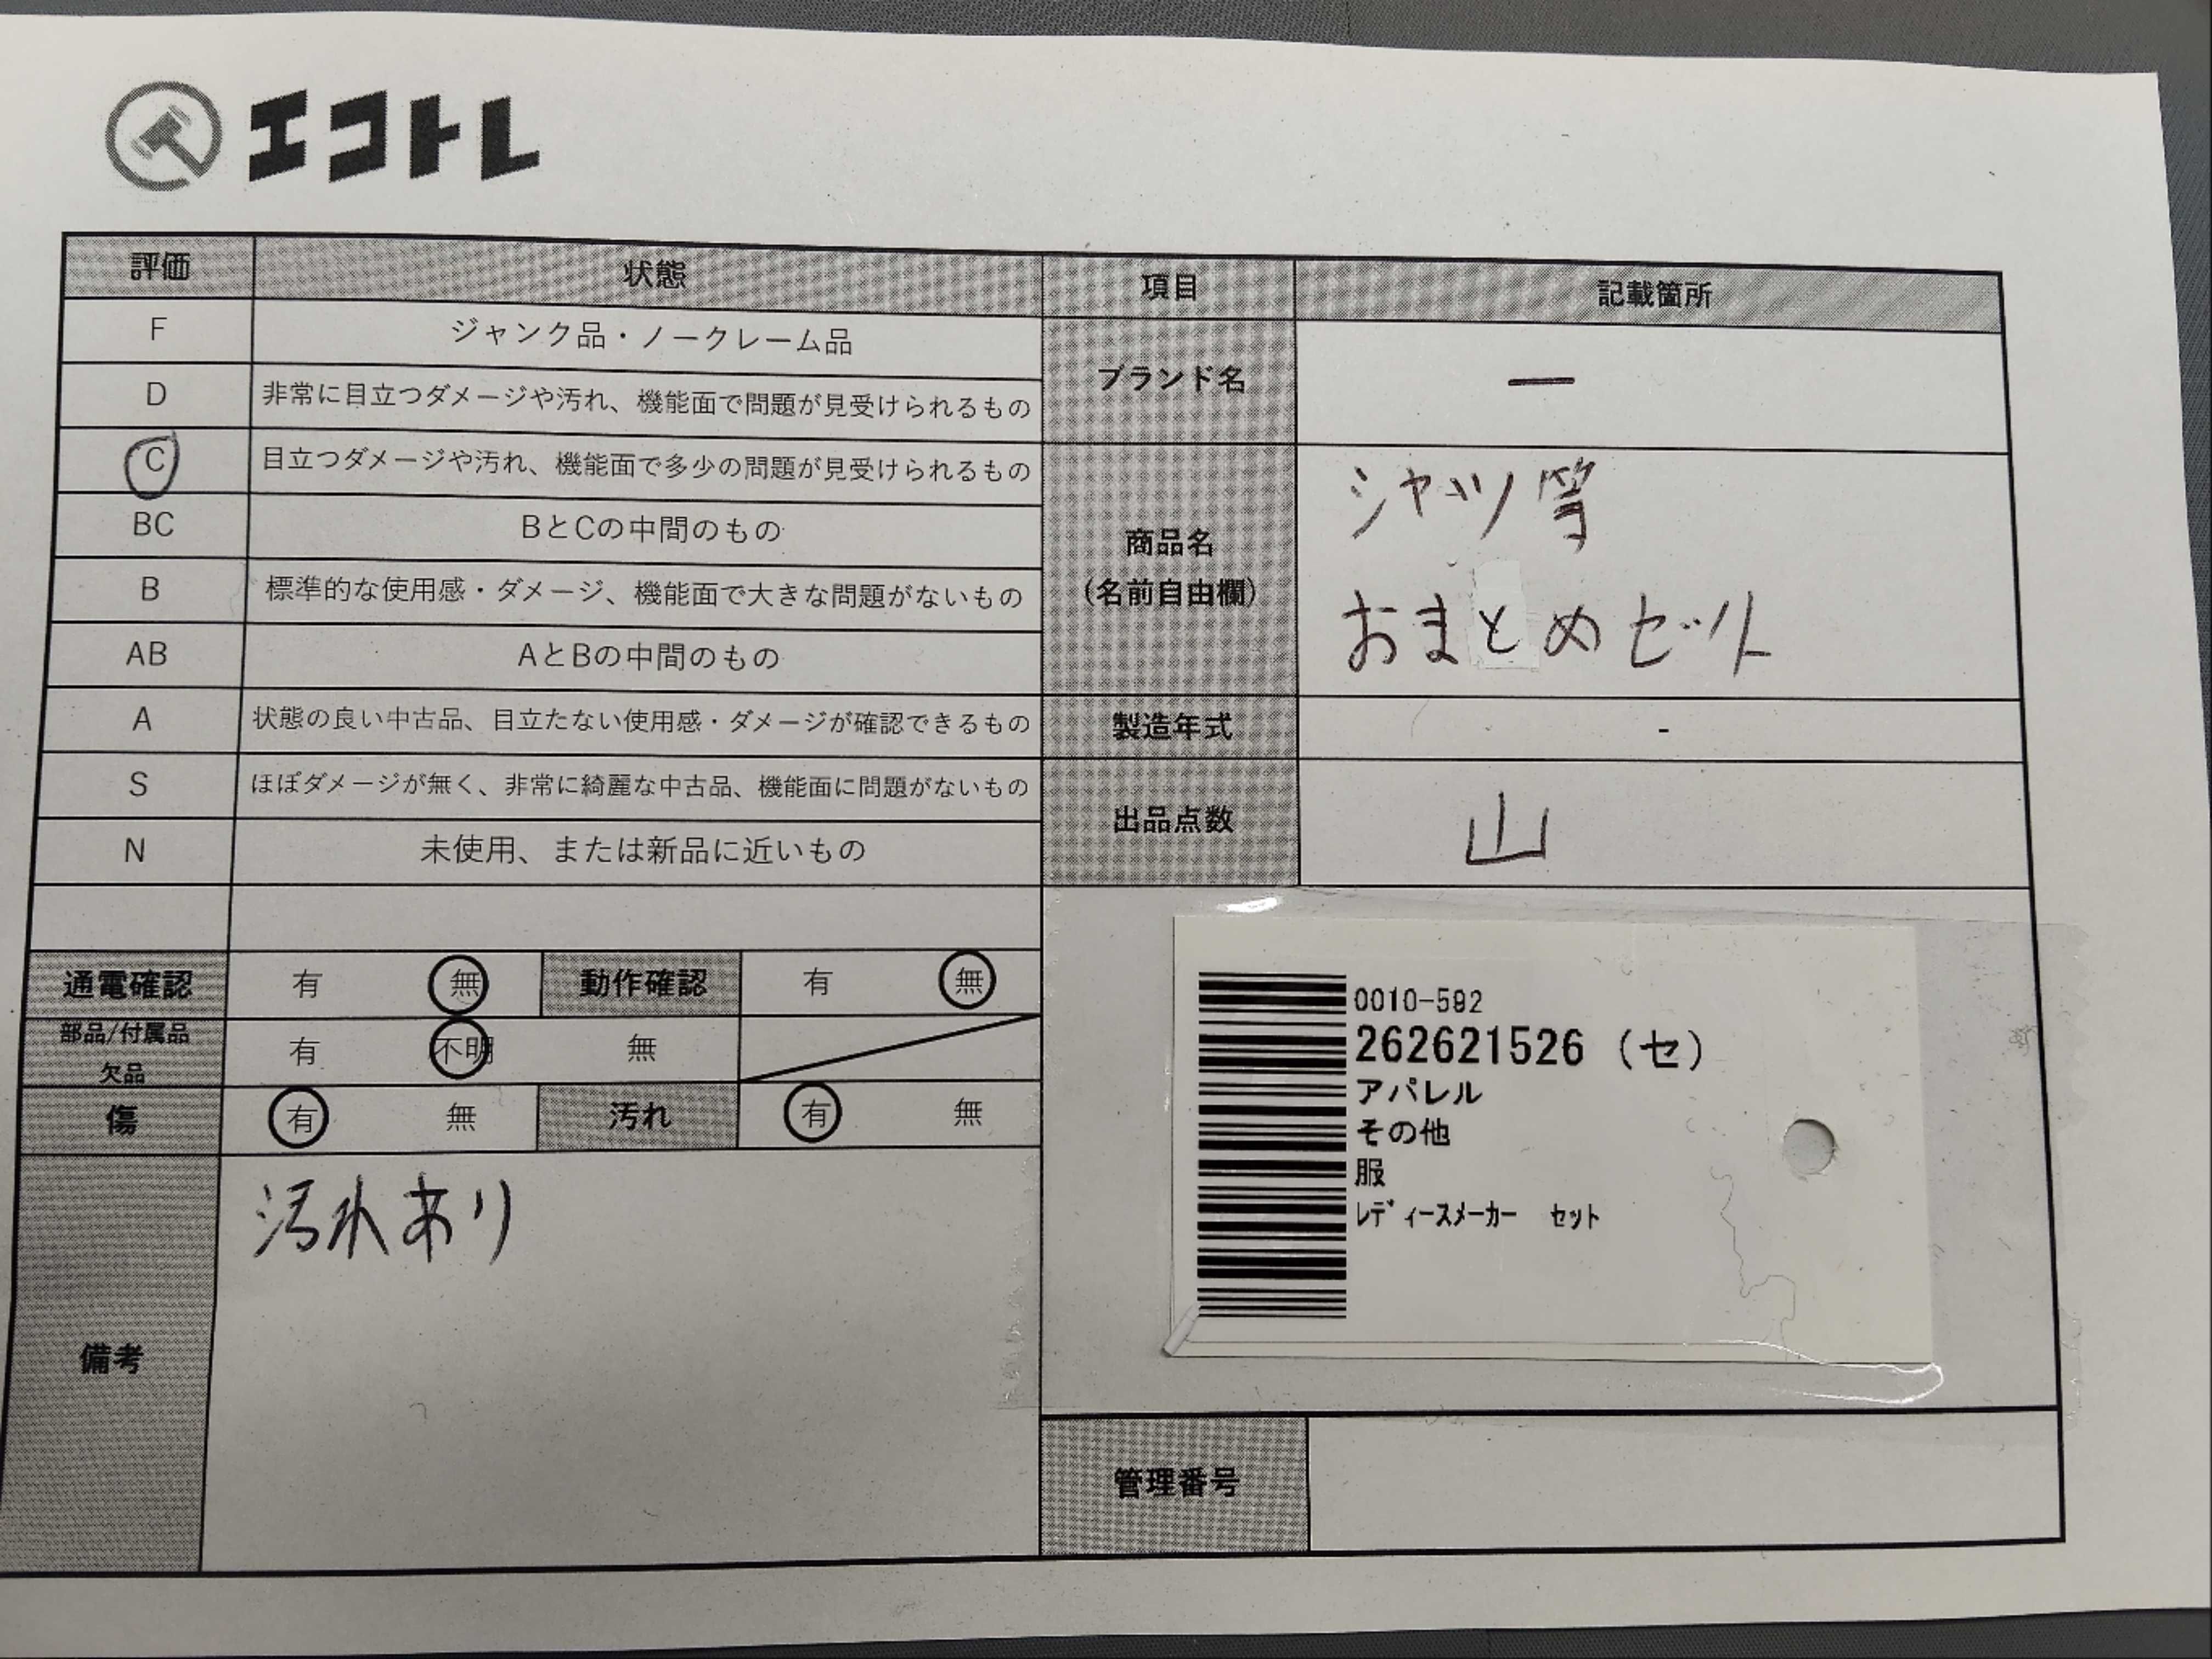 エコトレ
評価 状態 項目 記載箇所
F ジャンク品・ノークレーム品
D 非常に目立つダメージや汚れ、機能面で問題が見受けられるもの
ブランド名 ー
C 目立つダメージや汚れ、機能面で多少の問題が見受けられるもの
BC BとCの中間のもの
B 標準的な使用感・ダメージ、機能面で大きな問題がないもの
AB AとBの中間のもの
商品名
(名前自由欄)
シャツ等
おまとめセット
A 状態の良い中古品、目立たない使用感・ダメージが確認できるもの
製造年式 -
S ほぼダメージが無く、非常に綺麗な中古品、機能面に問題がないもの
N 未使用、または新品に近いもの
出品点数 山
通電確認 有 無 動作確認 有 無
部品/付属品
欠品
有 不明 無
傷 有 無 汚れ 有 無
備考
汚れあり
0010-592
262621526 (セ)
アパレル
その他
服
ﾚﾃﾞｨｰｽﾒｰｶｰ ｾｯﾄ
管理番号